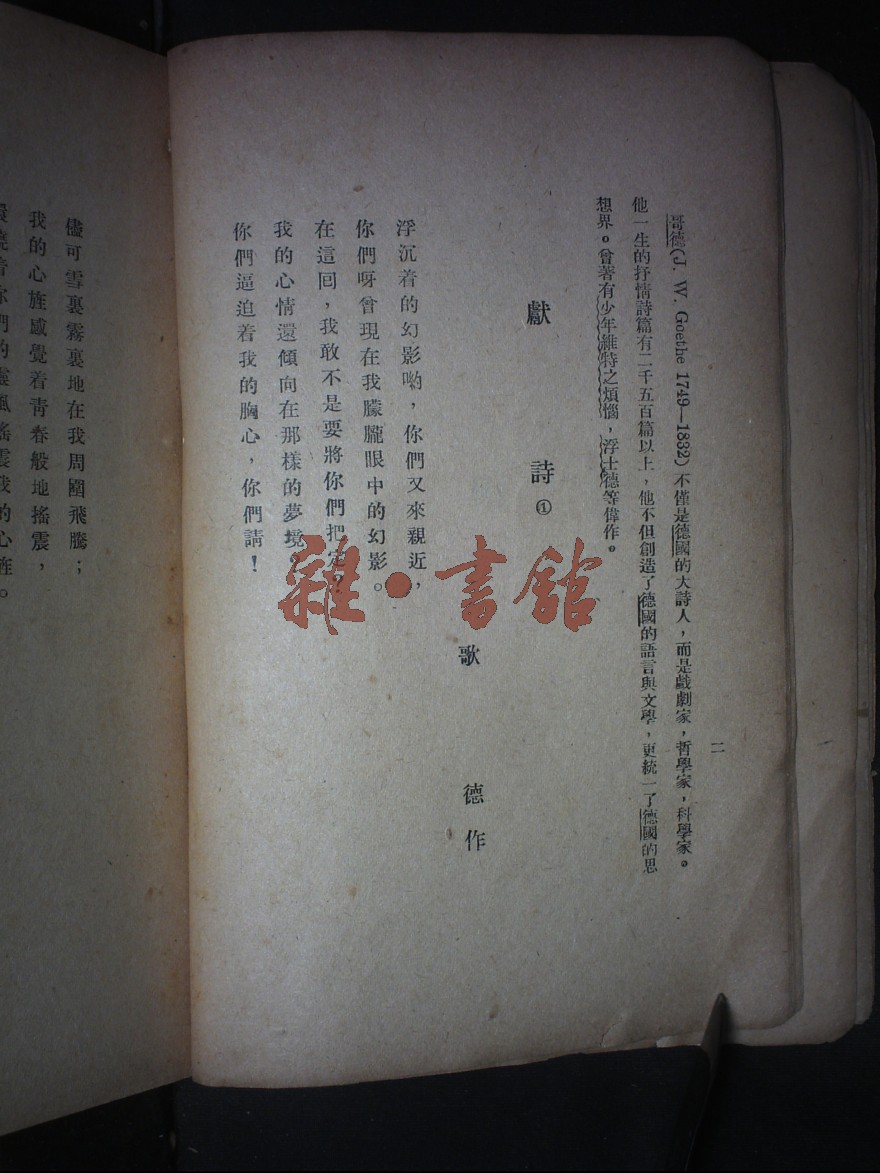 二
哥德(J. W. Goethe 1749—1832)不僅是德國的大詩人，而是戲劇家，哲學家，科學家。
他一生的抒情詩篇有二千五百篇以上，他不但創造了德國的語言與文學，更統一了德國的思
想界。曾著有少年維特之煩惱，浮士德等偉作。
獻詩①
歌德作
浮沉着的幻影喲，你們又來親近，
你們呀曾現在我朦朧眼中的幻影。
在這回，我敢不是要將你們把定？
我的心情還傾向在那樣的夢境。
你們逼迫着我的胸心，你們請！
儘可雲裏霧裏地在我周圍飛騰；
我的心旌感覺着青春般地搖震，
你們的靈風搖震我的心旌。
雜·書館